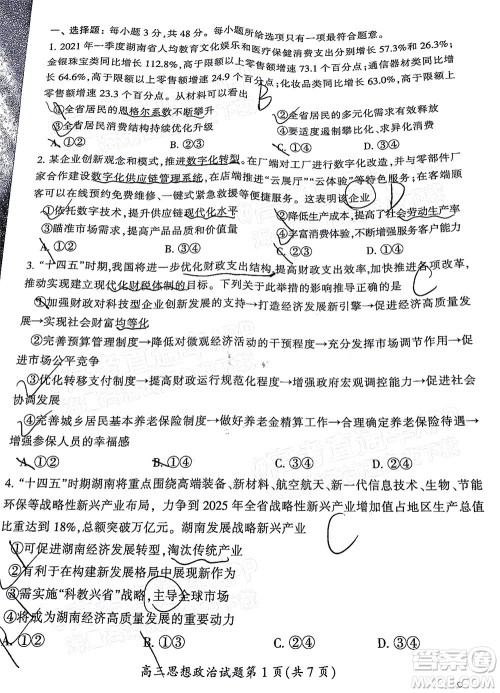 一、选择题：每小题 3 分，共 48 分。每小题给出的四个选项中，只有一项是符合题目要求的。
1. 2021 年一季度湖南省人均教育文化娱乐和医疗保健消费支出分别增长 57.3%和 26.3%；
金银珠宝类同比增长，高于限额以上零售额增速 73.1 个百分点；通信器材类同比增
长 64.6%，高于限额以上零售额增速 个百分点；化妆品类同比增长 63.6%，高于限额以上
零售额增速 23.3 个百分点。从材料可以看出
B
①全省居民的恩格尔系数不断攀升 ②全省居民的多元化需求有效释放
③全省居民消费结构持续优化升级 ④全省居民逐渐攀比化、求异化消费
A. ①② B. ②③ C. ①④ D. ③④
2. 某企业创新观念和模式，推进数字化转型。在厂端对工厂进行数字化改造，并与零部件厂
家合作建设数字化供应链管理系统；在店端推进“云展厅”“云体验”等特色服务；在客端顾
客可以在线预约免费维修、一键紧急救援等便捷服务。这表明该企业
D
①依托数字技术，实现供应链现代化水平 ②推动数字化改造，提高了社会劳动生产率
③瞄准市场需求，提升产品品质和价值量 ④增强市场服务能力，提升客户的满意度
A. ①② B. ①④ C. ②③ D. ③④
3. “十四五”时期，我国将进一步优化财政支出结构，提高财政支出效率，推进各项改革，
推动实现建立现代化财税体制的目标。下列关于此举措的影响推导正确的是
C
①加强财政对科技型企业创新发展的支持→打造经济发展新引擎→促进经济高质量发
展→实现社会财富均等化
②完善预算管理制度→减少对微观经济活动的干预程度→降低市场交易成本→促
进市场公平竞争
③优化转移支付制度→提高资金使用效益→增强政府宏观调控能力→促进经济社会
协调发展
④完善城乡居民基本养老保险制度→做好养老金精算工作→合理确定养老保险待遇→
增强参保人员的幸福感
A. ①② B. ①③ C. ③④ D. ②④
4. “十四五”时期湖南将重点围绕高端装备、新材料、航空航天、新一代信息技术、生物、节能
环保等战略性新兴产业布局，力争到 2025 年全省战略性新兴产业增加值占地区生产总值
比重达到 18%，总量突破万亿元。湖南发展战略性新兴产业
C
①可促进湖南经济发展转型，淘汰传统产业
②有利于在构建新发展格局中展现新作为
③需实施“科教兴省”战略，主导全球市场
④将成为湖南经济高质量发展的重要动力源
A. ①② B. ①③ C. ②④ D. ③④
高三思想政治试题第 1 页(共 7 页)